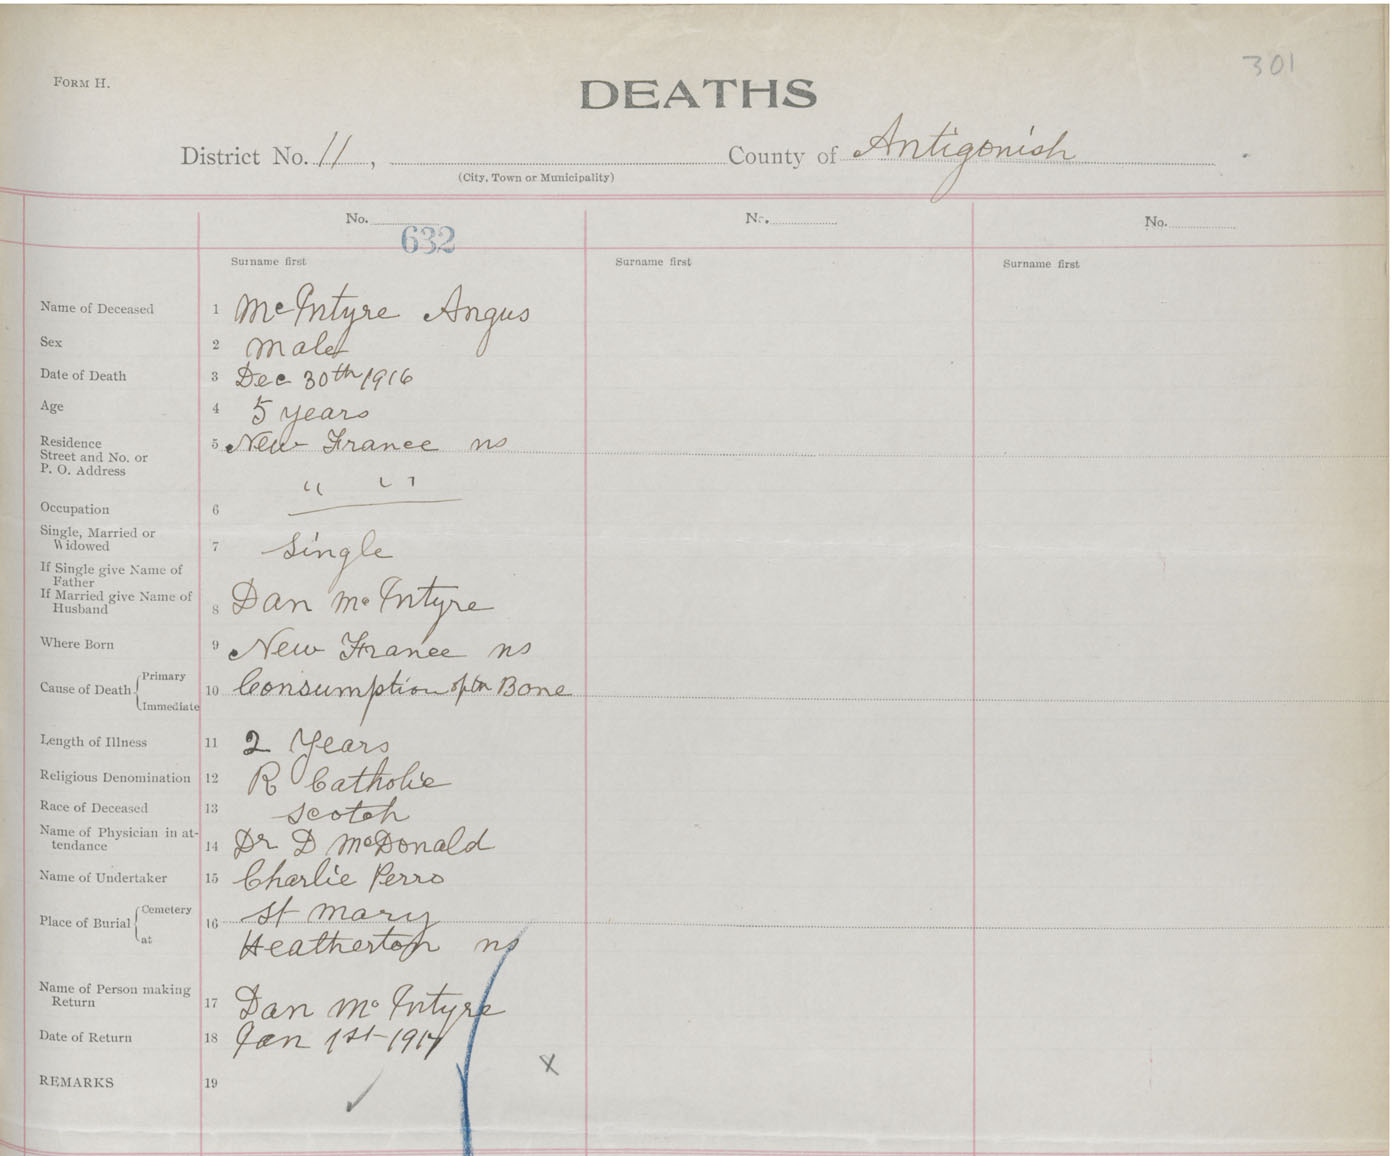 301
FORM H.
DEATHS
District No. 11, County of Antigonish
(City, Town or Municipality)
No. 632 No. No.
Surname first Surname first Surname first
Name of Deceased 1 McIntyre Angus
Sex 2 male
Date of Death 3 Dec 30th 1916
Age 4 5 years
Residence 5 New France ns
Street and No. or
P. O. Address
" "
Occupation 6
Single, Married or
Widowed 7 Single
If Single give Name of
Father
If Married give Name of
Husband 8 Dan McIntyre
Where Born 9 New France ns
Cause of Death Primary
Immediate 10 Consumption of Bone
Length of Illness 11 2 Years
Religious Denomination 12 R Catholic
Race of Deceased 13 Scotch
Name of Physician in at-
tendance 14 Dr D McDonald
Name of Undertaker 15 Charlie Perro
Place of Burial Cemetery 16 St Mary
at Heatherton ns
Name of Person making
Return 17 Dan McIntyre
Date of Return 18 Jan 1st 1917
x
REMARKS 19